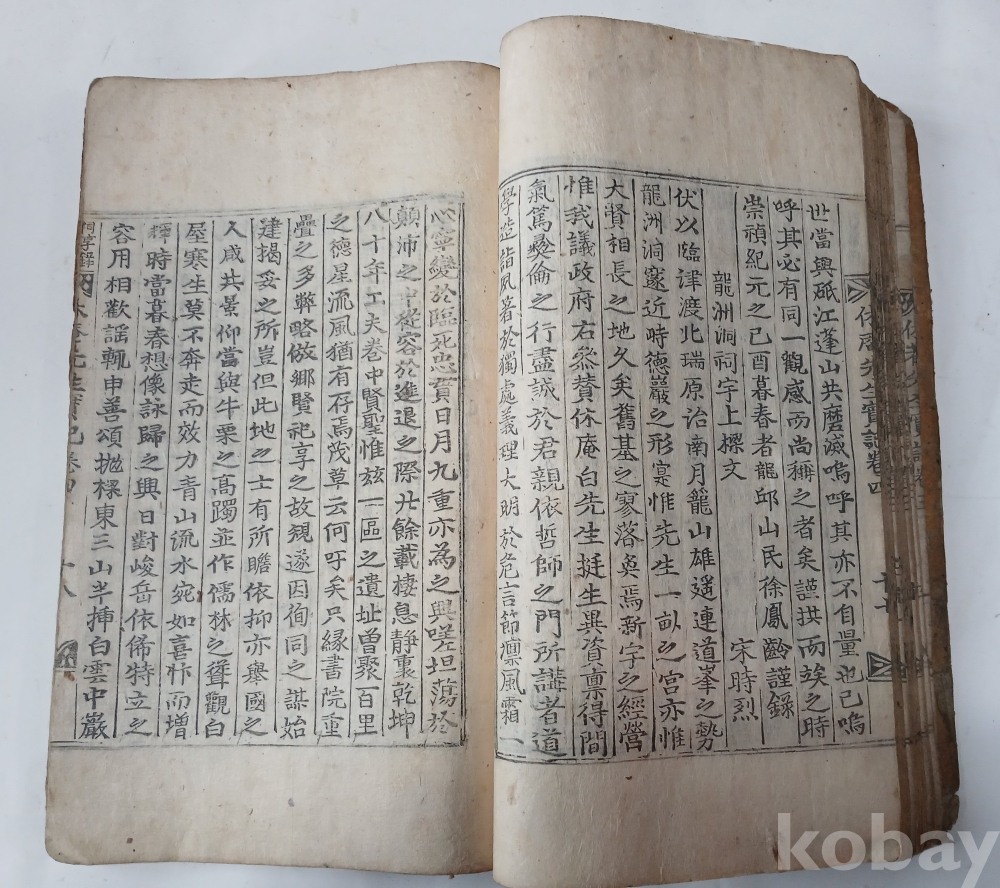 世當與砥江蓬山共磨滅嗚呼其亦不自量也已嗚
呼其必有同一觀感而尚稱之者矣謹拱而竢之時
崇禎紀元之己酉暮春者龍邱山民徐鳳齡謹錄
龍洲洞祠宇上樑文
宋時烈
伏以臨津渡北瑞原治南月籠山雄遥連道峯之勢
龍洲洞邃近時德巖之形寔惟先生一畝之宮亦惟
大賢相長之地久矣舊基之寥落奐焉新宇之經營
惟我議政府右叅贊休庵白先生挺生異資稟得間
氣篤彜倫之行盡誠於君親依哲師之門所講者道
學造詣夙著於獨處義理大明於危言節凛風霜一
心寧變於臨死忠貫日月九重亦為之興嗟坦蕩於
顛沛之中從容於進退之際廿餘載棲息靜裏乾坤
八十年工夫卷中賢聖惟玆一區之遺址曾聚百里
之德星流風猶有存焉茂草云何吁矣只縁書院重
疊之多弊略倣鄉賢祀享之故規遂因佝同之謀始
建揭妥之所豈但此地之士有所瞻依抑亦舉國之
人咸共景仰當與牛栗之高躅並作儒林之聳觀白
屋寒生莫不奔走而效力青山流水宛如喜忭而增
輝時當暮春想像詠歸之興日對峻岳依俙特立之
容用相歡謡輒申善頌拋樑東三山半揷白雲中巖
休庵先生實記卷四
kobay